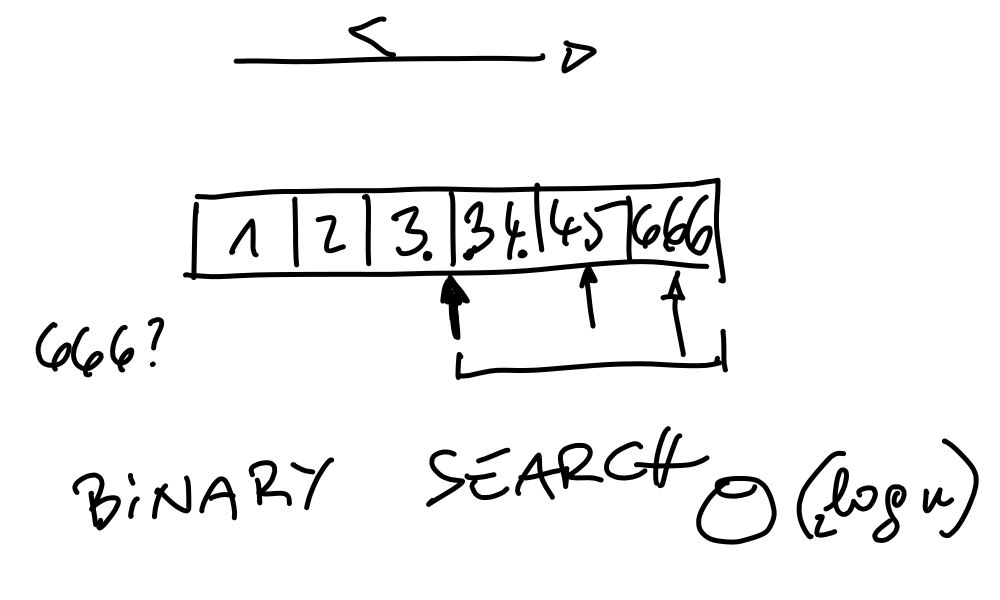 <
1 2 3. .34. 45 666
666?
BiNARY SEARCH O(₂log n)